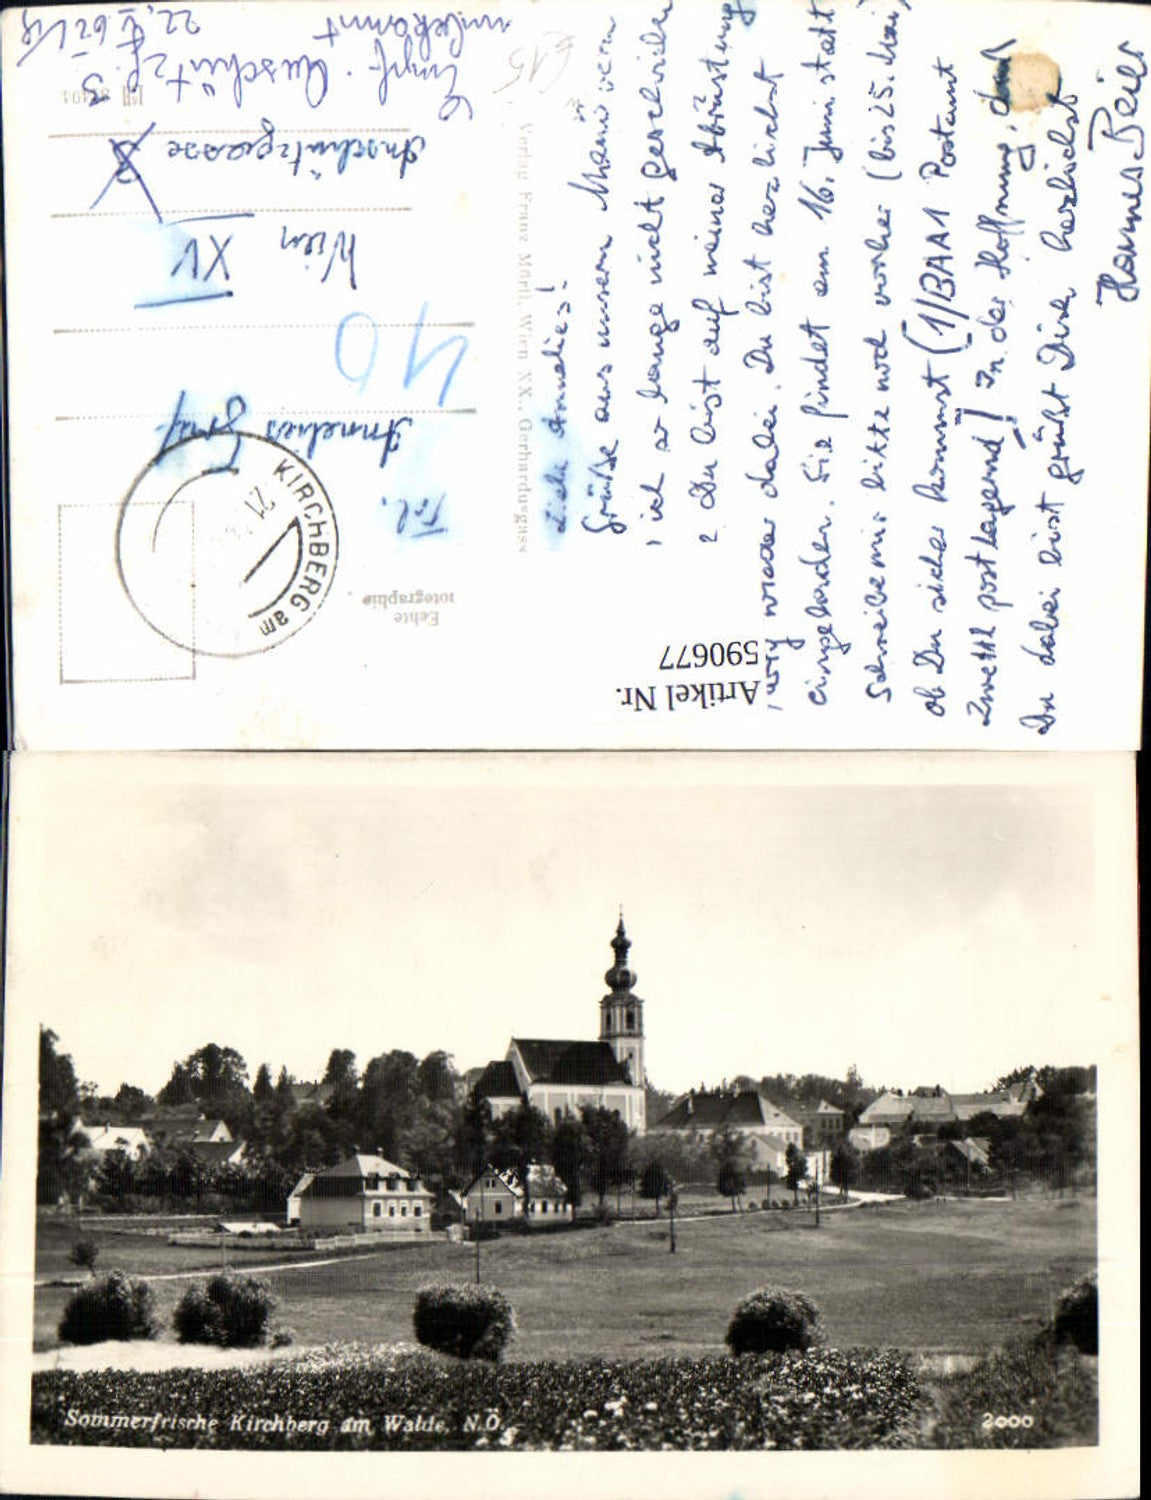 Empf. Anschützg. 3
unbekannt
22.
Echte
Fotographie
Frl.
Annelies Graf
40
Wien XV
Anschützgasse 3
Verlag Franz Mörtl, Wien XX., Gerhardusgasse
KIRCHBERG am
21.
€15
Liebe Annelies!
Grüße aus unserm Manövern
ich so lange nicht geschrieben
Du bist auf meiner Abrüstung
wieder dabei. Du bist herzlichst
eingeladen. Sie findet am 16. Juni statt
Schreibe mir bitte noch vorher (bis 25. Mai)
ob Du sicher kommst (1/BAA1 Postamt
Zwettl postlagernd)! In der Hoffnung, daß
Du dabei bist grüßt Dich herzlichst
Hannes
Artikel Nr.
590677
Sommerfrische Kirchberg am Walde, N.Ö.
2000